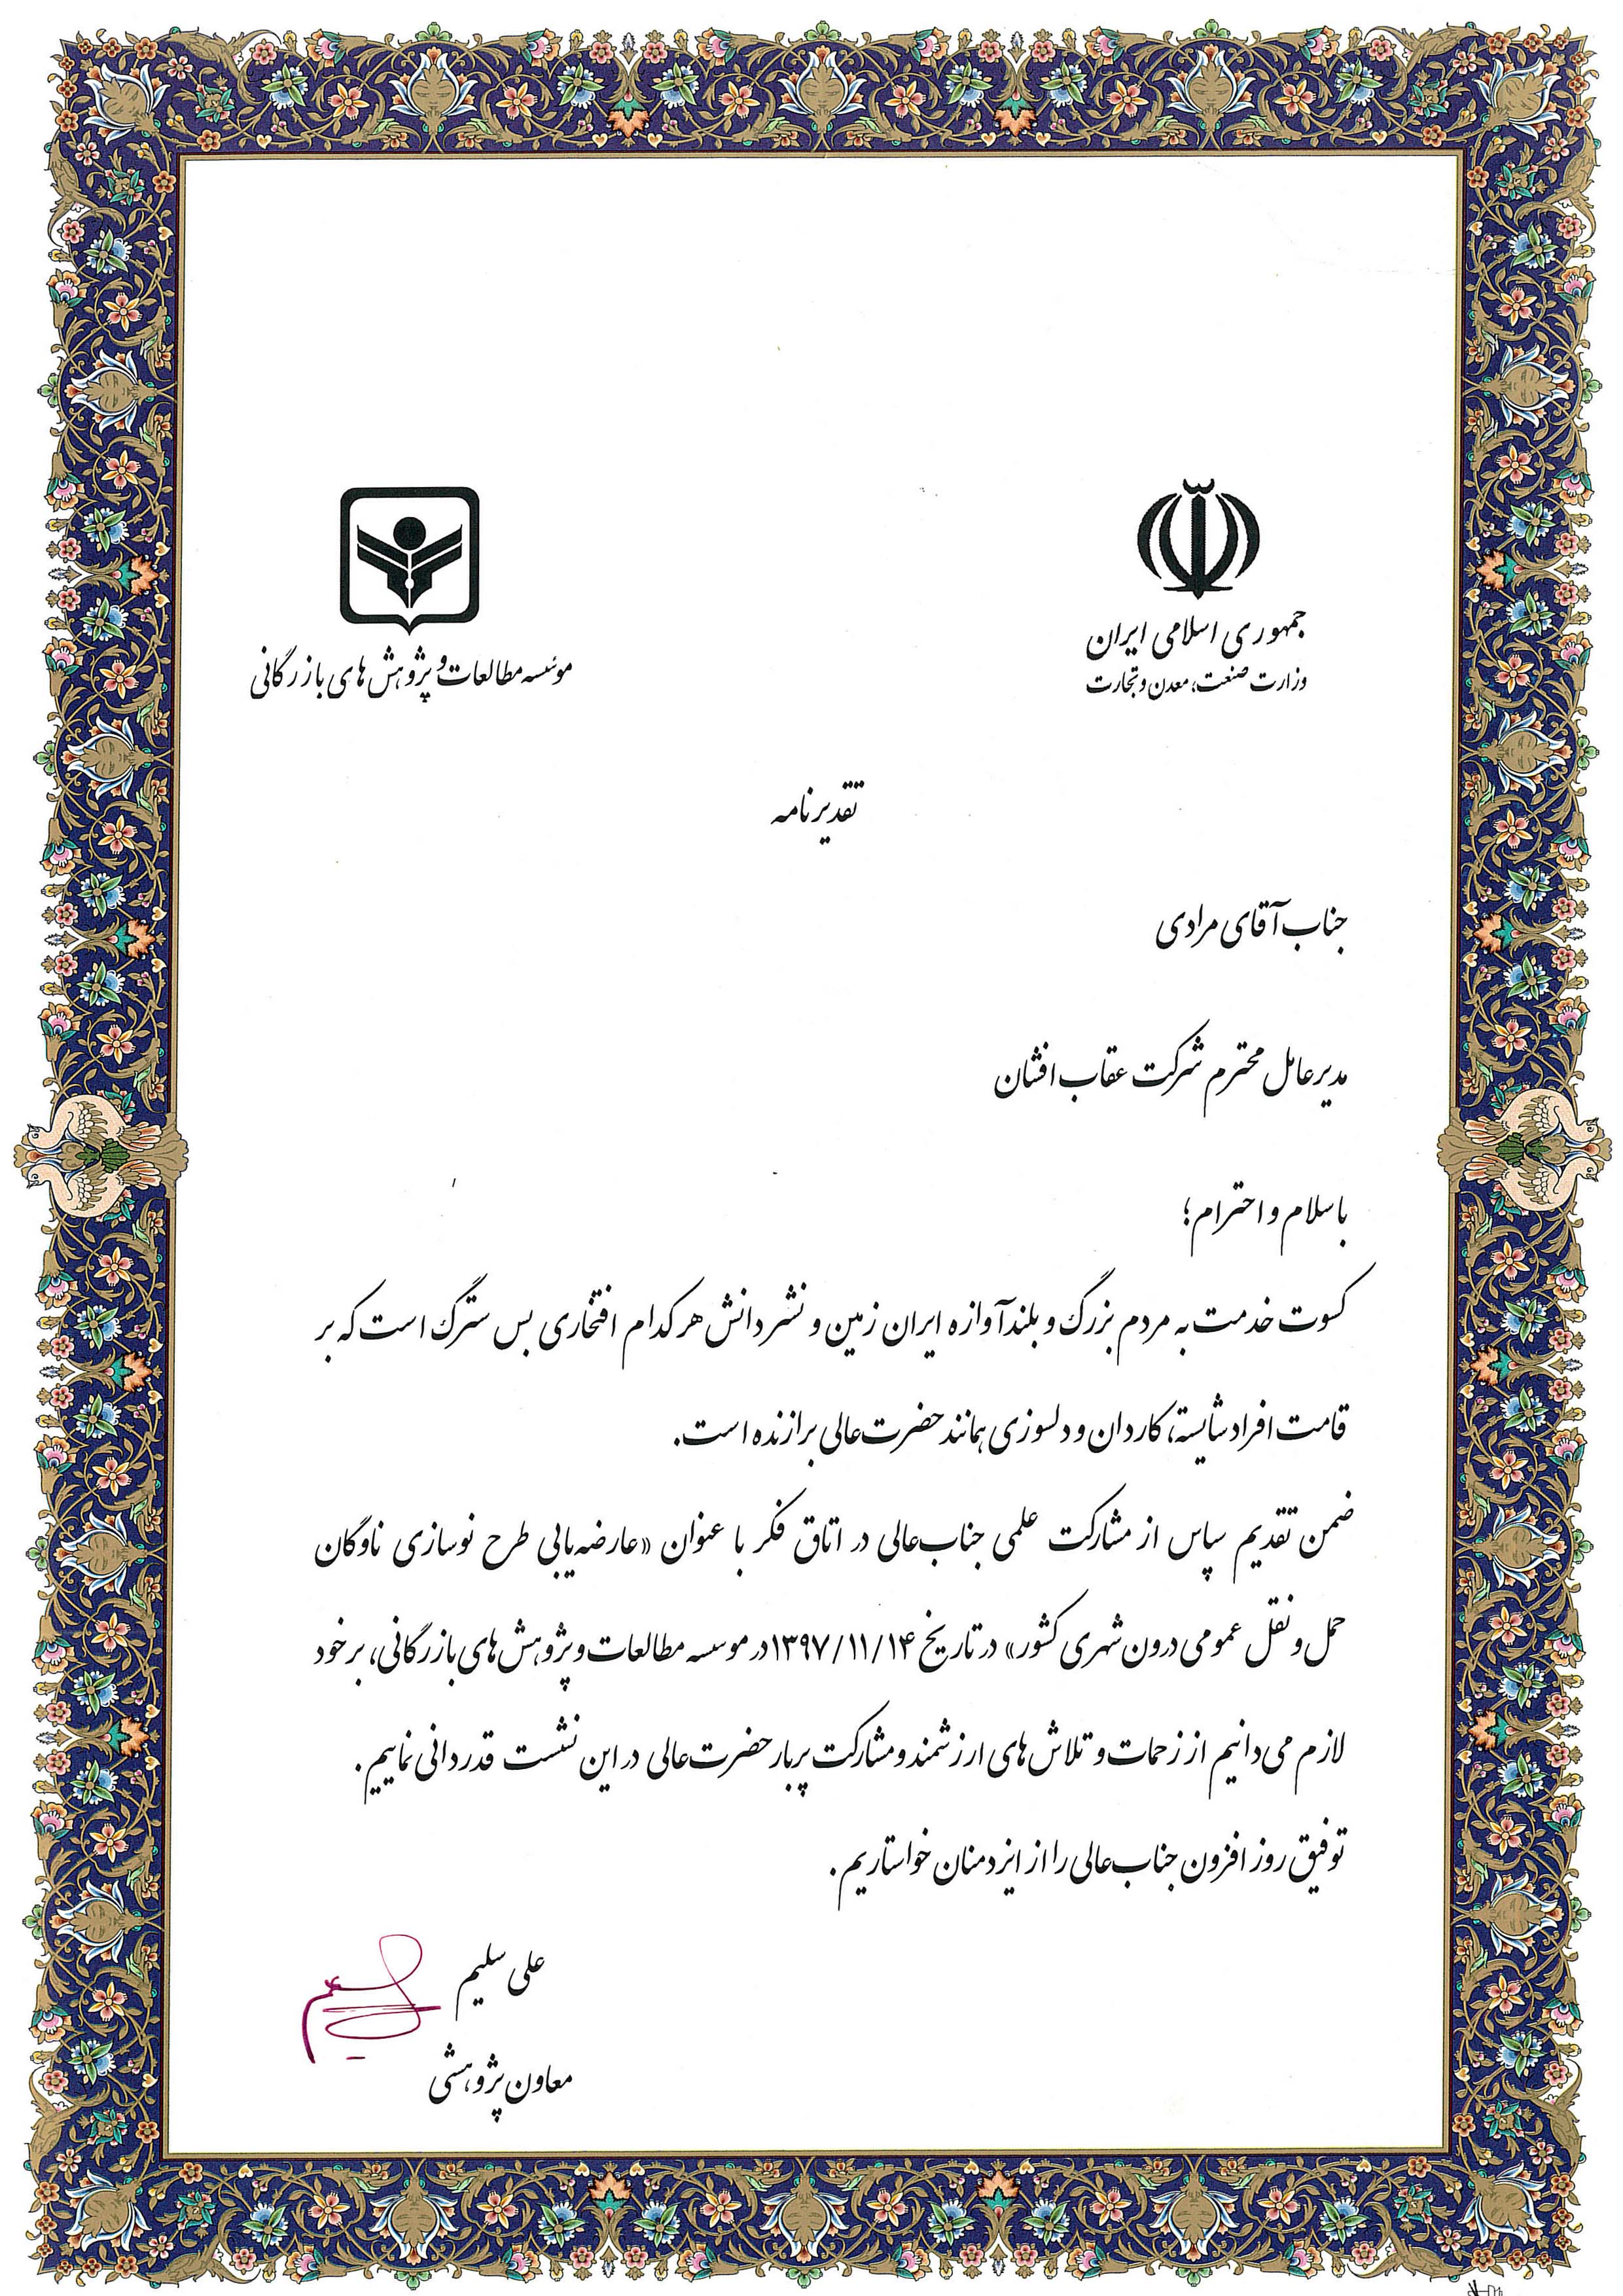 جمهوری اسلامی ایران
وزارت صنعت، معدن و تجارت
موئسسه مطالعات و پژوهش های بازرگانی
تقدیرنامه
جناب آقای مرادی
مدیرعامل محترم شرکت عقاب افشان
باسلام و احترام؛
کسوت خدمت به مردم بزرگ و بلندآوازه ایران زمین و نشر دانش هر کدام افتخاری بس سترگ است که بر
قامت افراد شایسته، کاردان و دلسوزی همانند حضرت‌عالی برازنده است.
ضمن تقدیم سپاس از مشارکت علمی جناب‌عالی در اتاق فکر با عنوان «عارضه‌یابی طرح نوسازی ناوگان
حمل و نقل عمومی درون شهری کشور» در تاریخ ۱۳۹۷/۱۱/۱۴ در موسسه مطالعات و پژوهش‌های بازرگانی، بر خود
لازم می‌دانیم از زحمات و تلاش‌های ارزشمند و مشارکت پربار حضرت‌عالی در این نشست قدردانی نماییم.
توفیق روز افزون جناب‌عالی را از ایزد منان خواستاریم.
علی سلیم
معاون پژوهشی